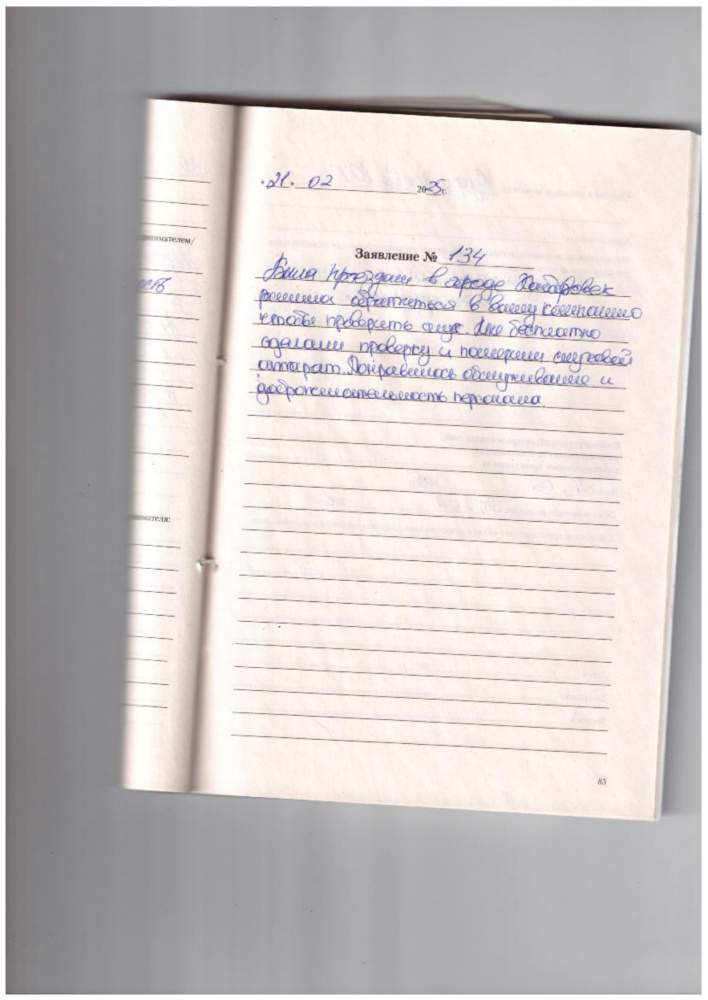 "21" 02 2025г.
Заявление № 134
нимателем/
Была проездом в городе Хабаровск
решила обратиться в вашу компанию
чтобы проверить слух. Мне бесплатно
сделали проверку и померили слуховой
аппарат. Понравилось обслуживание и
доброжелательность персонала.
нимателя:
85